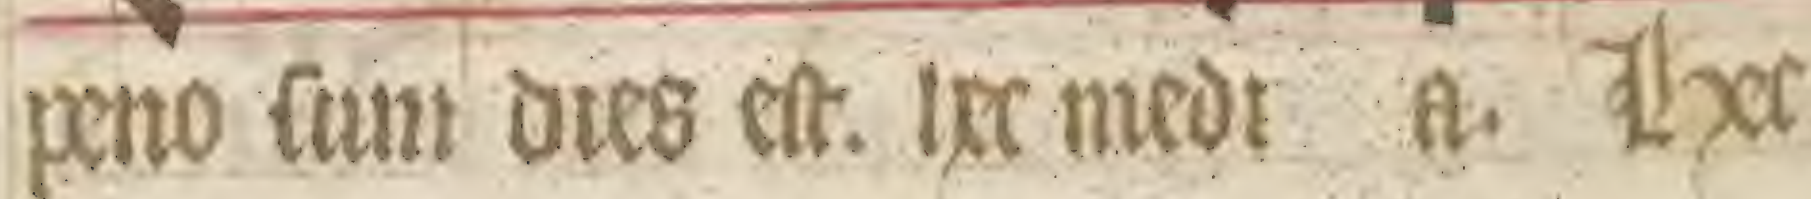 peno sum dies est. lxc medi a. Lxc